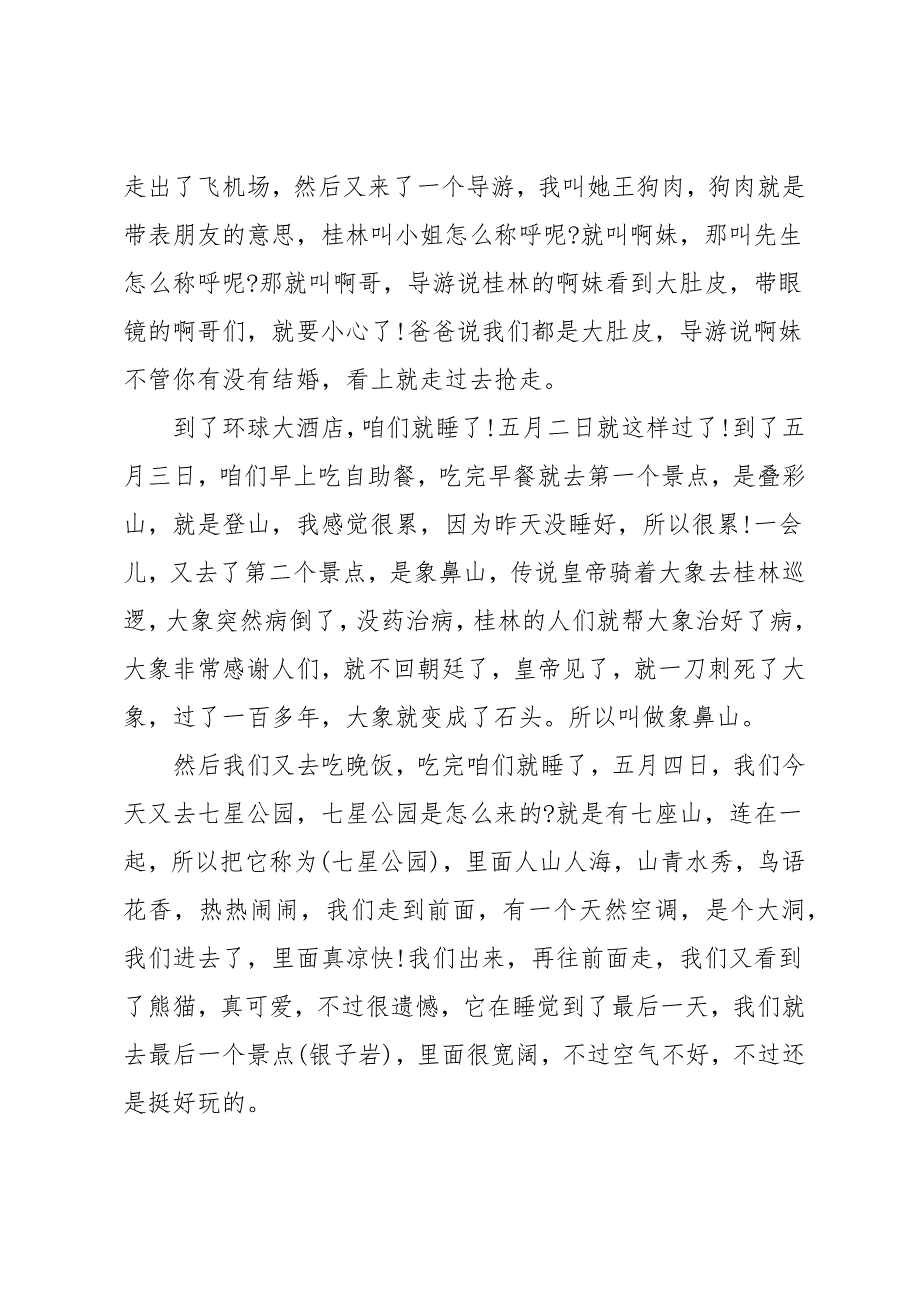 走出了飞机场，然后又来了一个导游，我叫她王狗肉，狗肉就是
带表朋友的意思，桂林叫小姐怎么称呼呢?就叫啊妹，那叫先生
怎么称呼呢?那就叫啊哥，导游说桂林的啊妹看到大肚皮，带眼
镜的啊哥们，就要小心了!爸爸说我们都是大肚皮，导游说啊妹
不管你有没有结婚，看上就走过去抢走。
到了环球大酒店，咱们就睡了!五月二日就这样过了!到了五
月三日，咱们早上吃自助餐，吃完早餐就去第一个景点，是叠彩
山，就是登山，我感觉很累，因为昨天没睡好，所以很累!一会
儿，又去了第二个景点，是象鼻山，传说皇帝骑着大象去桂林巡
逻，大象突然病倒了，没药治病，桂林的人们就帮大象治好了病，
大象非常感谢人们，就不回朝廷了，皇帝见了，就一刀刺死了大
象，过了一百多年，大象就变成了石头。所以叫做象鼻山。
然后我们又去吃晚饭，吃完咱们就睡了，五月四日，我们今
天又去七星公园，七星公园是怎么来的?就是有七座山，连在一
起，所以把它称为(七星公园)，里面人山人海，山青水秀，鸟语
花香，热热闹闹，我们走到前面，有一个天然空调，是个大洞，
我们进去了，里面真凉快!我们出来，再往前面走，我们又看到
了熊猫，真可爱，不过很遗憾，它在睡觉到了最后一天，我们就
去最后一个景点(银子岩)，里面很宽阔，不过空气不好，不过还
是挺好玩的。